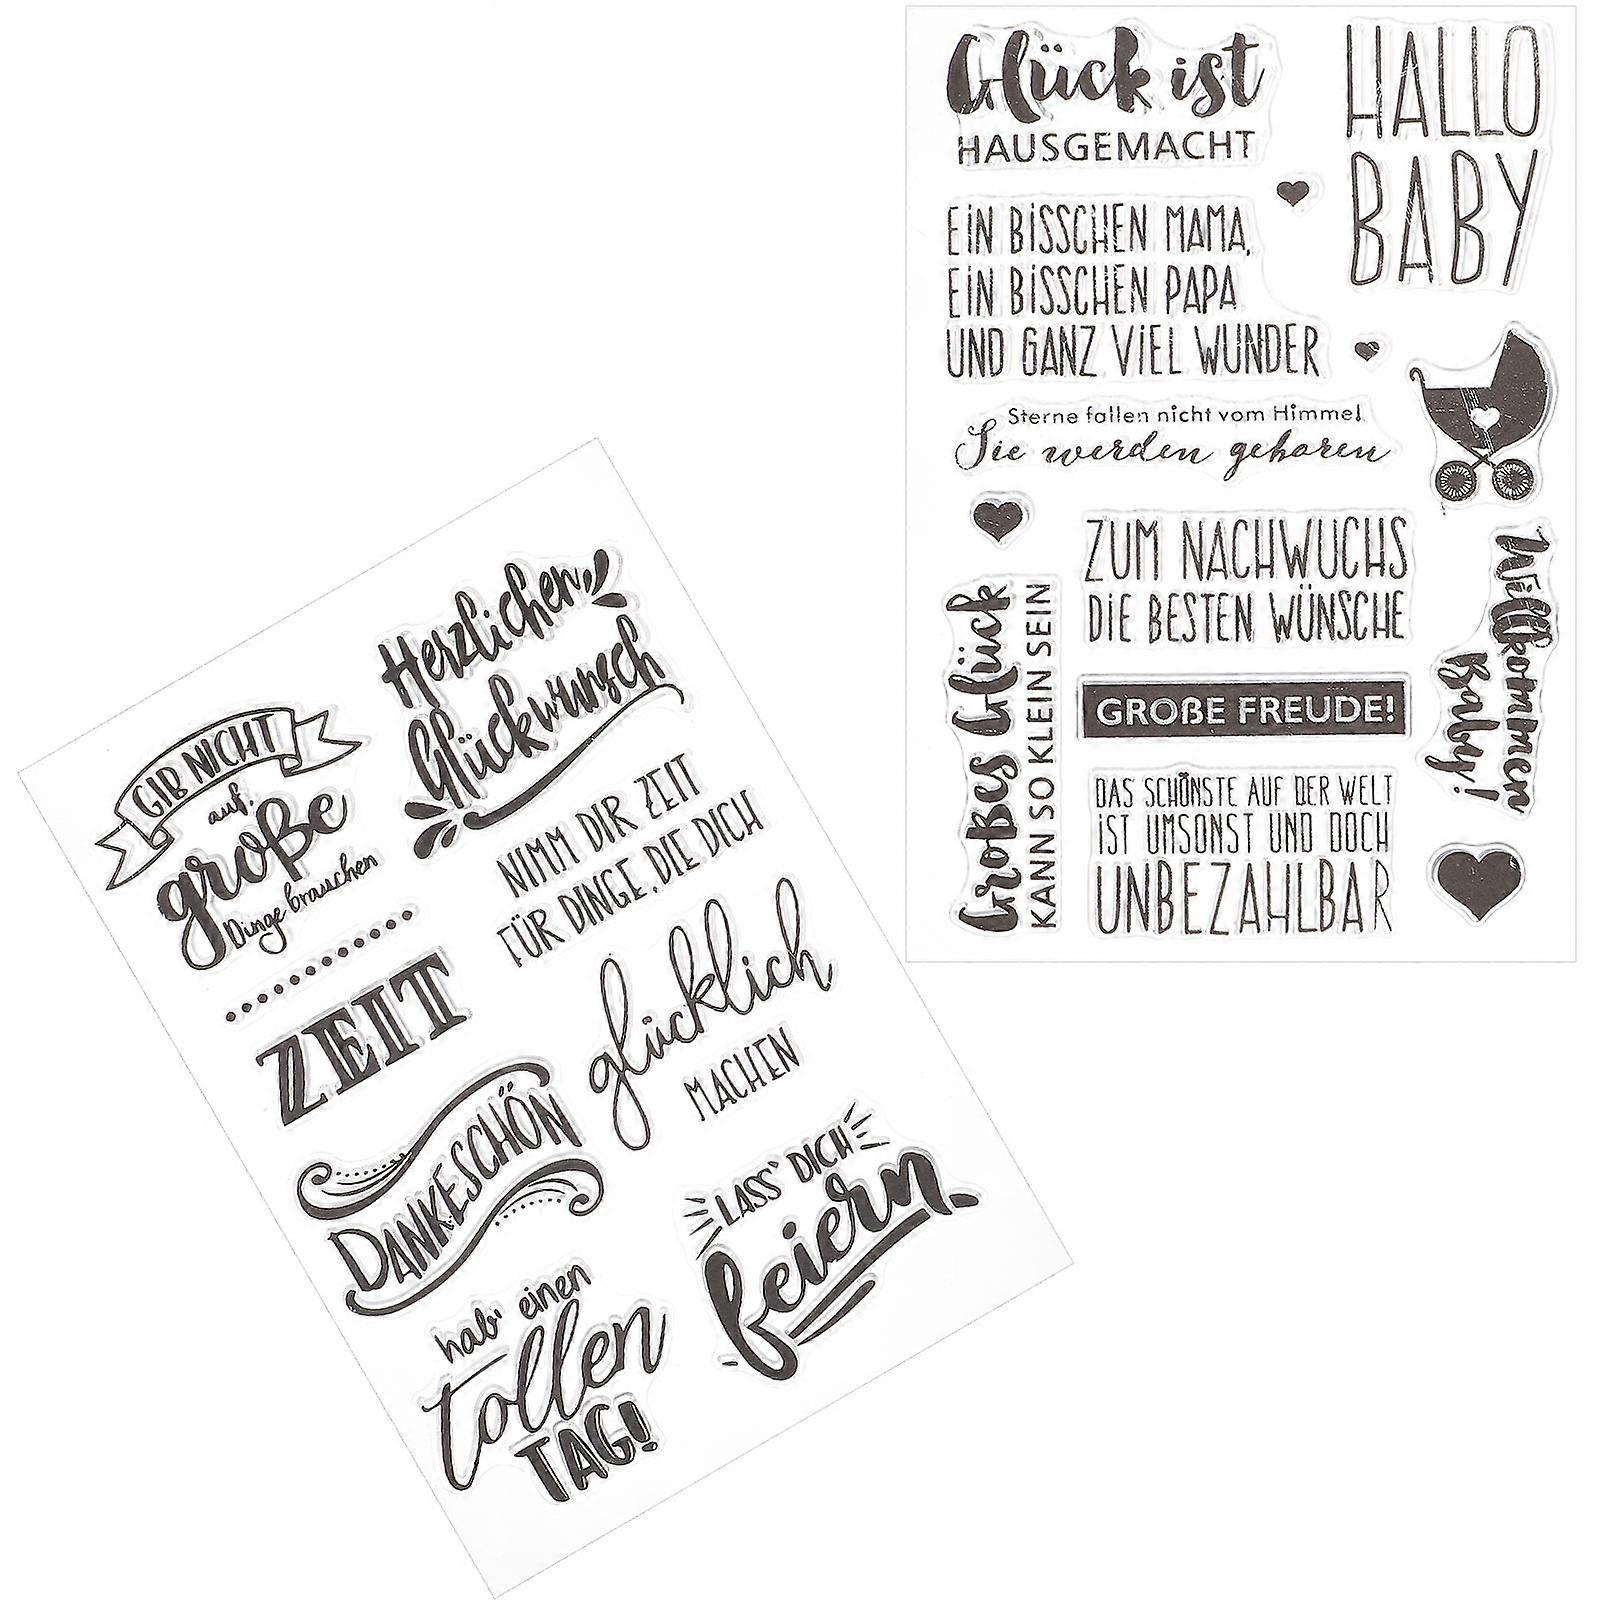 Glück ist
HAUSGEMACHT
HALLO
BABY
EIN BISSCHEN MAMA,
EIN BISSCHEN PAPA
UND GANZ VIEL WUNDER
Sterne fallen nicht vom Himmel
Sie werden geboren
ZUM NACHWUCHS
DIE BESTEN WÜNSCHE
Großes Glück
KANN SO KLEIN SEIN
GROßE FREUDE!
Willkommen
Baby!
DAS SCHÖNSTE AUF DER WELT
IST UMSONST UND DOCH
UNBEZAHLBAR
Herzlichen
Glückwunsch
GIB NICHT
auf,
große
Dinge brauchen
ZEIT
NIMM DIR ZEIT
FÜR DINGE, DIE DICH
glücklich
MACHEN
DANKESCHÖN
LASS' DICH
feiern
hab' einen
tollen
TAG!